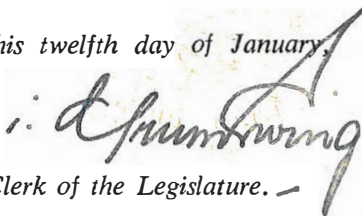 his twelfth day of January,
Clerk of the Legislature.